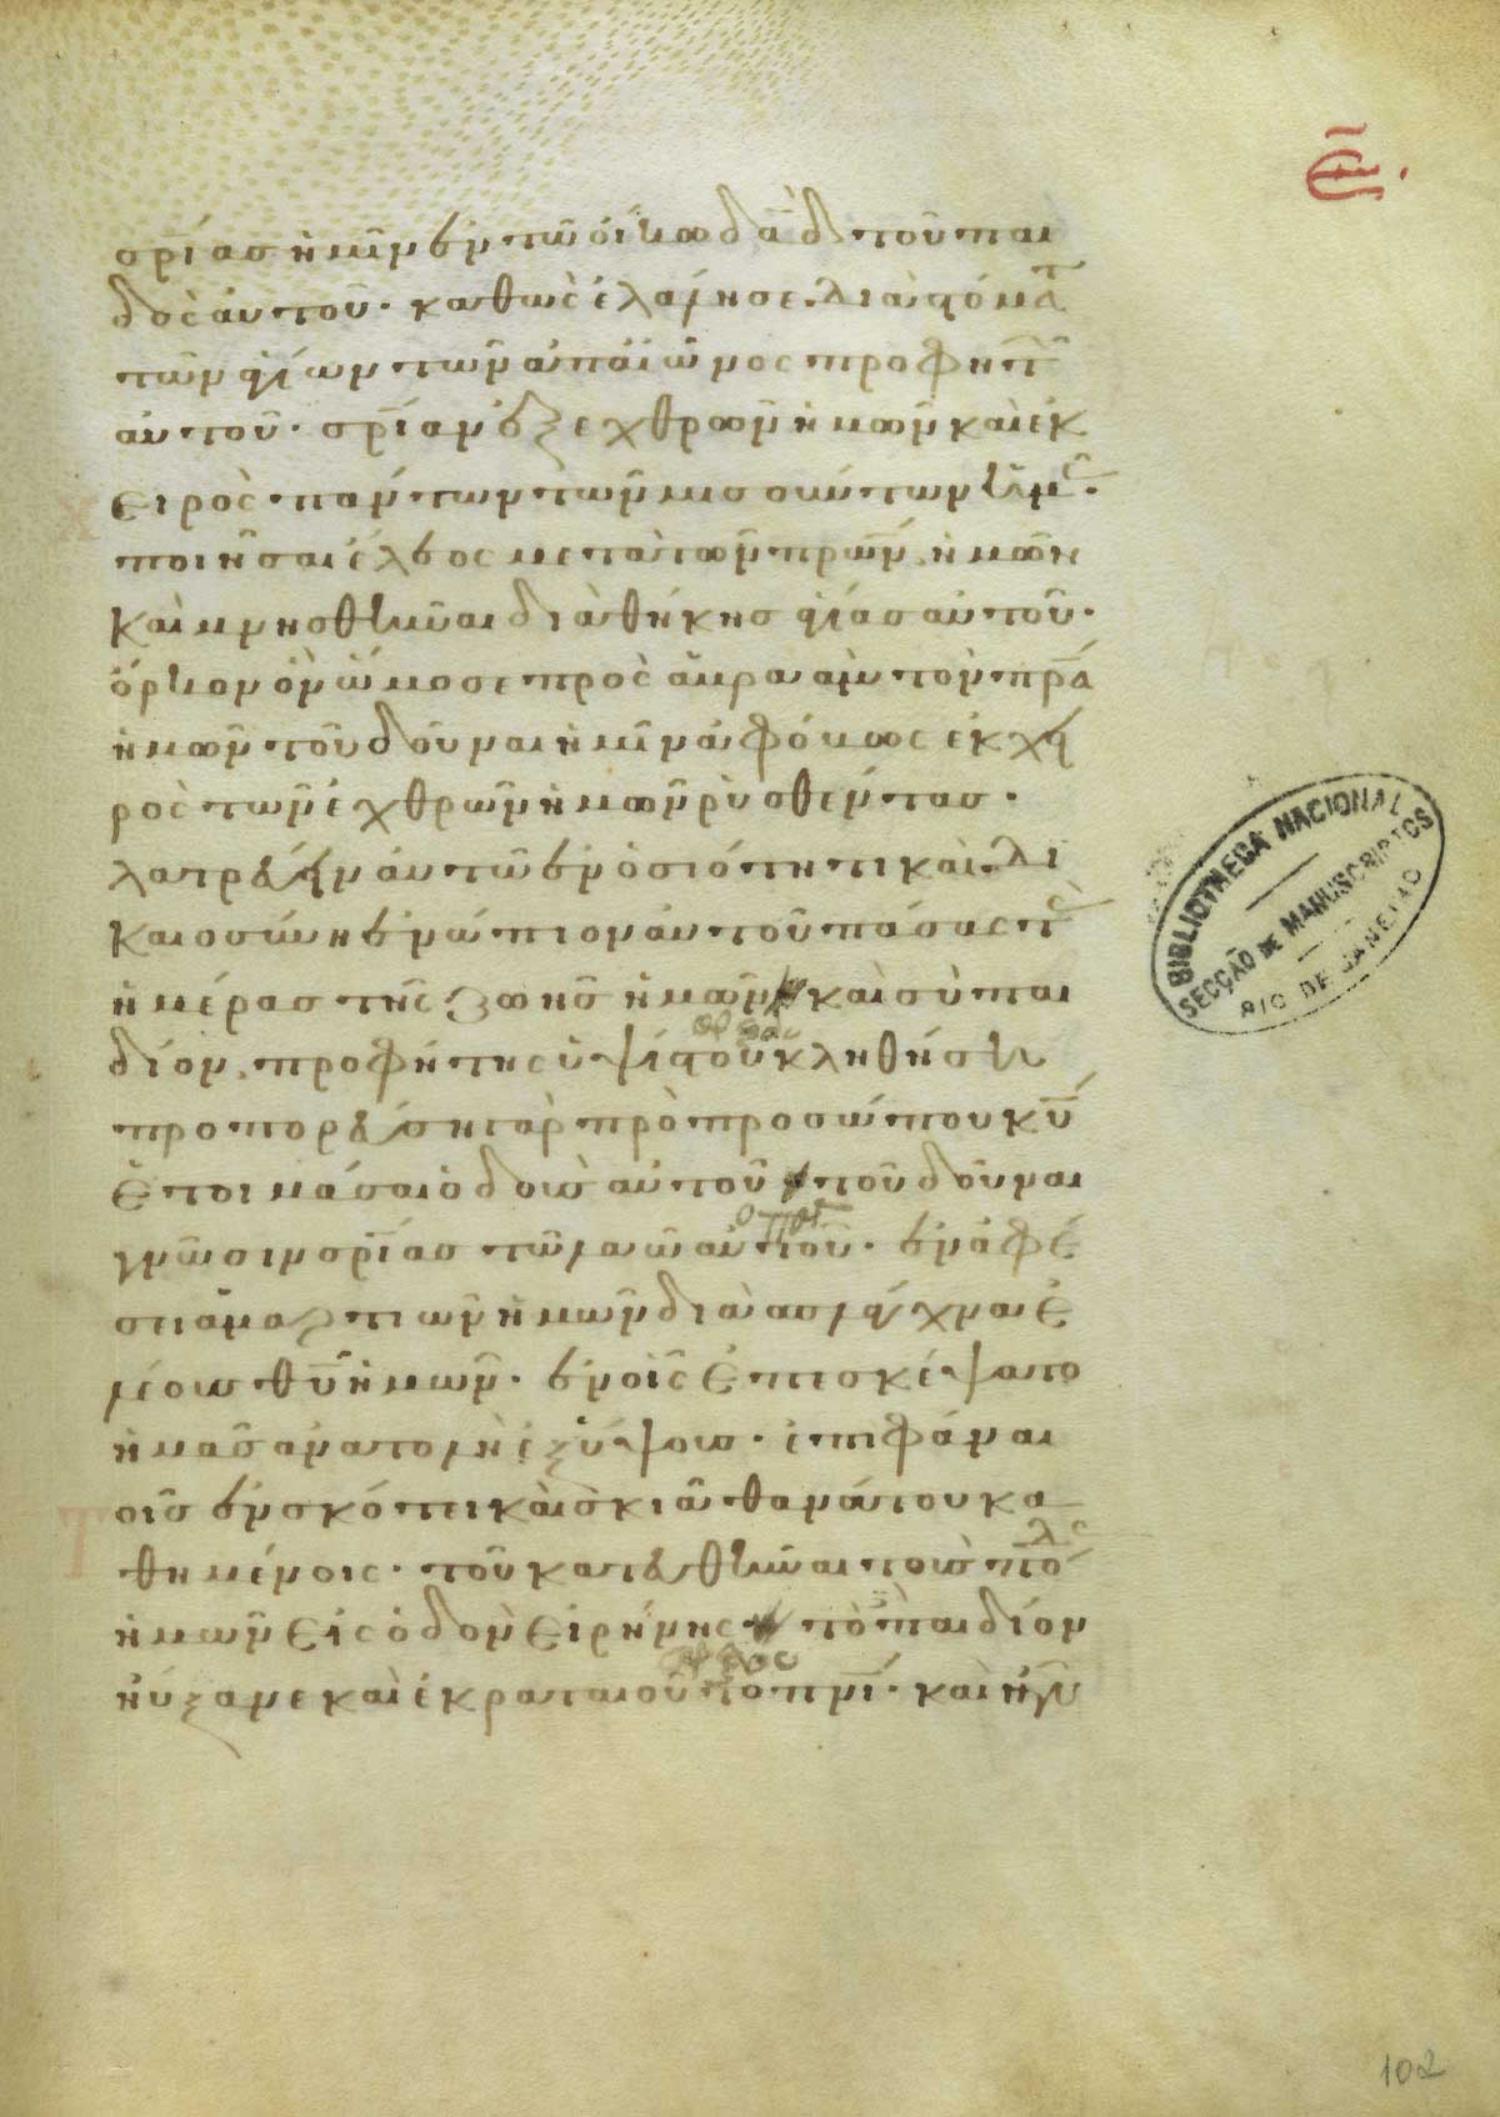 ε̅.
σρ̅ίας ἡμῖν ἐν τῶ οἴκω δα̅δ τοῦ παι
δὸς αὐτοῦ· καθὼς ἐλάλησε διὰ στόματ
τῶν ἁγίων τῶν ἀπ' αἰῶνος προφητ
αὐτοῦ· σρ̅ίαν ἐξ ἐχθρῶν ἡμῶν καὶ ἐκ
ειρὸς πάντων τῶν μισούντων ἡμᾶς·
ποιῆσαι ἔλεος μετὰ τῶν πρ̅ων ἡμῶν
καὶ μνησθῆναι διαθήκης ἁγίας αὐτοῦ·
ὅρκον ὃν ὤμοσε πρὸς ἀβραὰμ τὸν πρ̅α
ἡμῶν τοῦ δοῦναι ἡμῖν ἀφόβως ἐκ χει
ρὸς τῶν ἐχθρῶν ἡμῶν ῥυσθέντας·
λατρεύειν αὐτῶ ἐν ὁσιότητι καὶ δι
καιοσύνη ἐνώπιον αὐτοῦ πάσας τὰς
ἡμέρας τῆς ζωῆς ἡμῶν καὶ σὺ παι
δίον προφήτης ὑψίστου κληθήση
προπορεύση γὰρ πρὸ προσώπου κ̅υ
ἑτοιμάσαι ὁδοὺς αὐτοῦ τοῦ δοῦναι
γνῶσιν σρ̅ίας τῶ λαῶ αὐτοῦ· ἐν ἀφέ
σει ἁμαρτιῶν ἡμῶν διὰ σπλάγχνα ἐ
λέους θ̅υ ἡμῶν· ἐν οἷς ἐπεσκέψατο
ἡμᾶς ἀνατολὴ ἐξ ὕψους· ἐπιφάναι
οῖς ἐν σκότει καὶ σκιᾶ θανάτου κα
θημένοις· τοῦ κατευθῦναι τοὺς πόδας
ἡμῶν εἰς ὁδὸν εἰρήνης τὸ παιδίον
ηὔξανε καὶ ἐκραταιοῦτο πν̅ι· καὶ ἦν
BIBLIOTHECA NACIONAL
SECÇÃO DE MANUSCRIPTOS
RIO DE JANEIRO
102